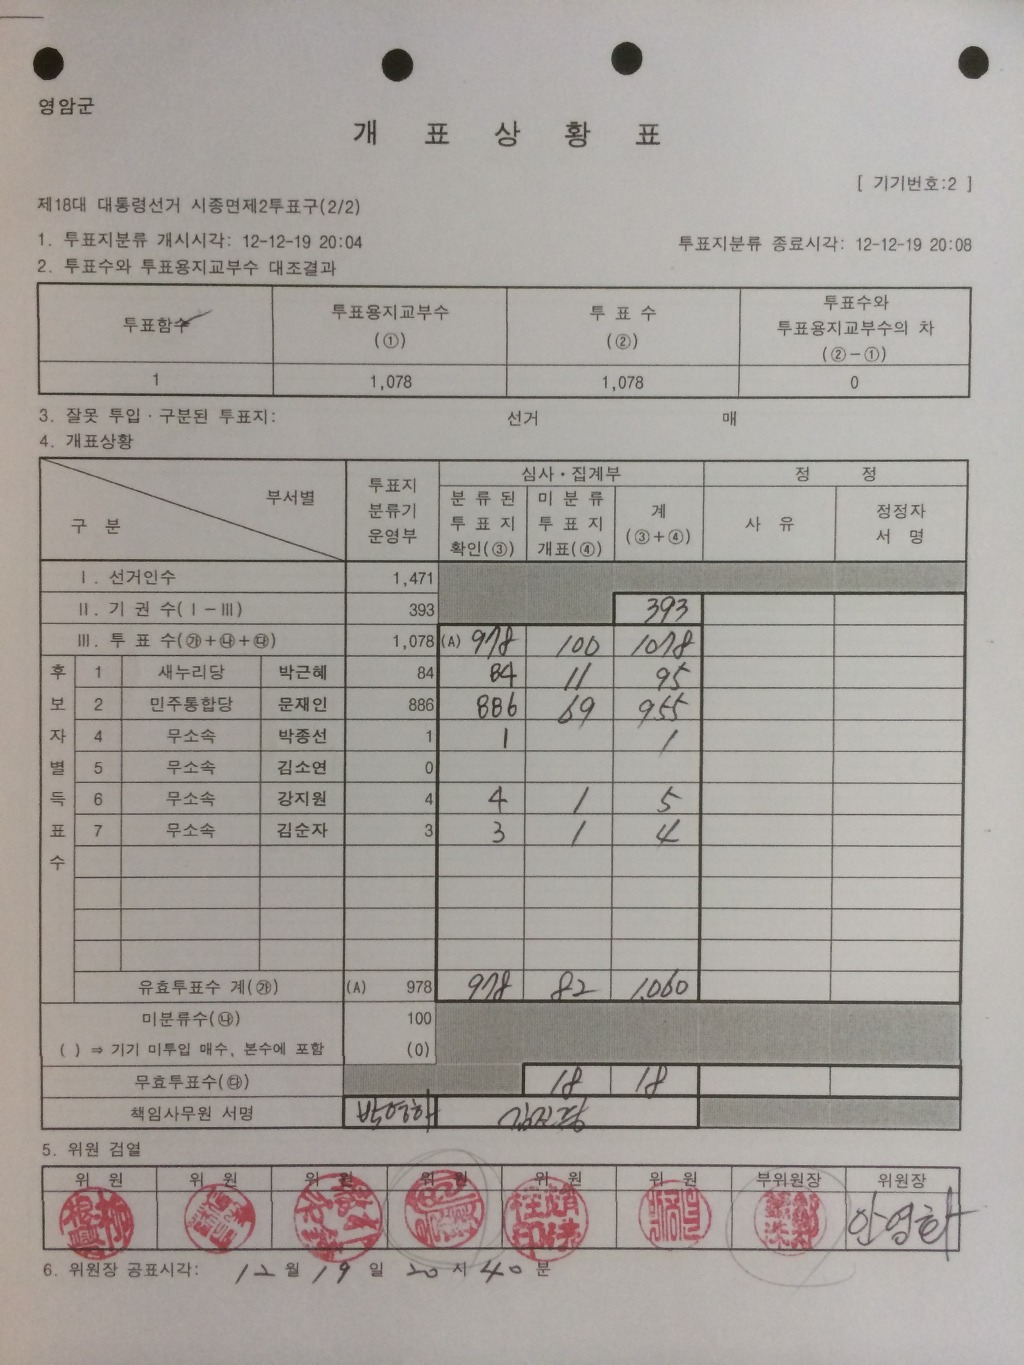 영암군
개 표 상 황 표
[ 기기번호:2 ]
제18대 대통령선거 시종면제2투표구(2/2)
1. 투표지분류 개시시각: 12-12-19 20:04 투표지분류 종료시각: 12-12-19 20:08
2. 투표수와 투표용지교부수 대조결과
투표함수 투표용지교부수 (①) 투 표 수 (②) 투표수와 투표용지교부수의 차 (②-①)
1 1,078 1,078 0
3. 잘못 투입·구분된 투표지: 선거 매
4. 개표상황
부서별 구 분 투표지 분류기 운영부 심사·집계부 정 정
분 류 된 투 표 지 확인(③) 미 분 류 투 표 지 개표(④) 계 (③+④) 사 유 정정자 서 명
Ⅰ. 선거인수 1,471
Ⅱ. 기 권 수(Ⅰ-Ⅲ) 393 393
Ⅲ. 투 표 수(㉮+㉯+㉰) 1,078 (A) 978 100 1078
후보자별득표수
1 새누리당 박근혜 84 84 11 95
2 민주통합당 문재인 886 886 69 955
4 무소속 박종선 1 1 1
5 무소속 김소연 0
6 무소속 강지원 4 4 1 5
7 무소속 김순자 3 3 1 4
유효투표수 계(㉮) (A) 978 978 82 1,060
미분류수(㉯) 100
( ) ⇒ 기기 미투입 매수, 본수에 포함 (0)
무효투표수(㉰) 18 18
책임사무원 서명
5. 위원 검열
위 원 위 원 위 원 위 원 위 원 위 원 부위원장 위원장
안영하
6. 위원장 공표시각: 12 월 19 일 20 시 40 분